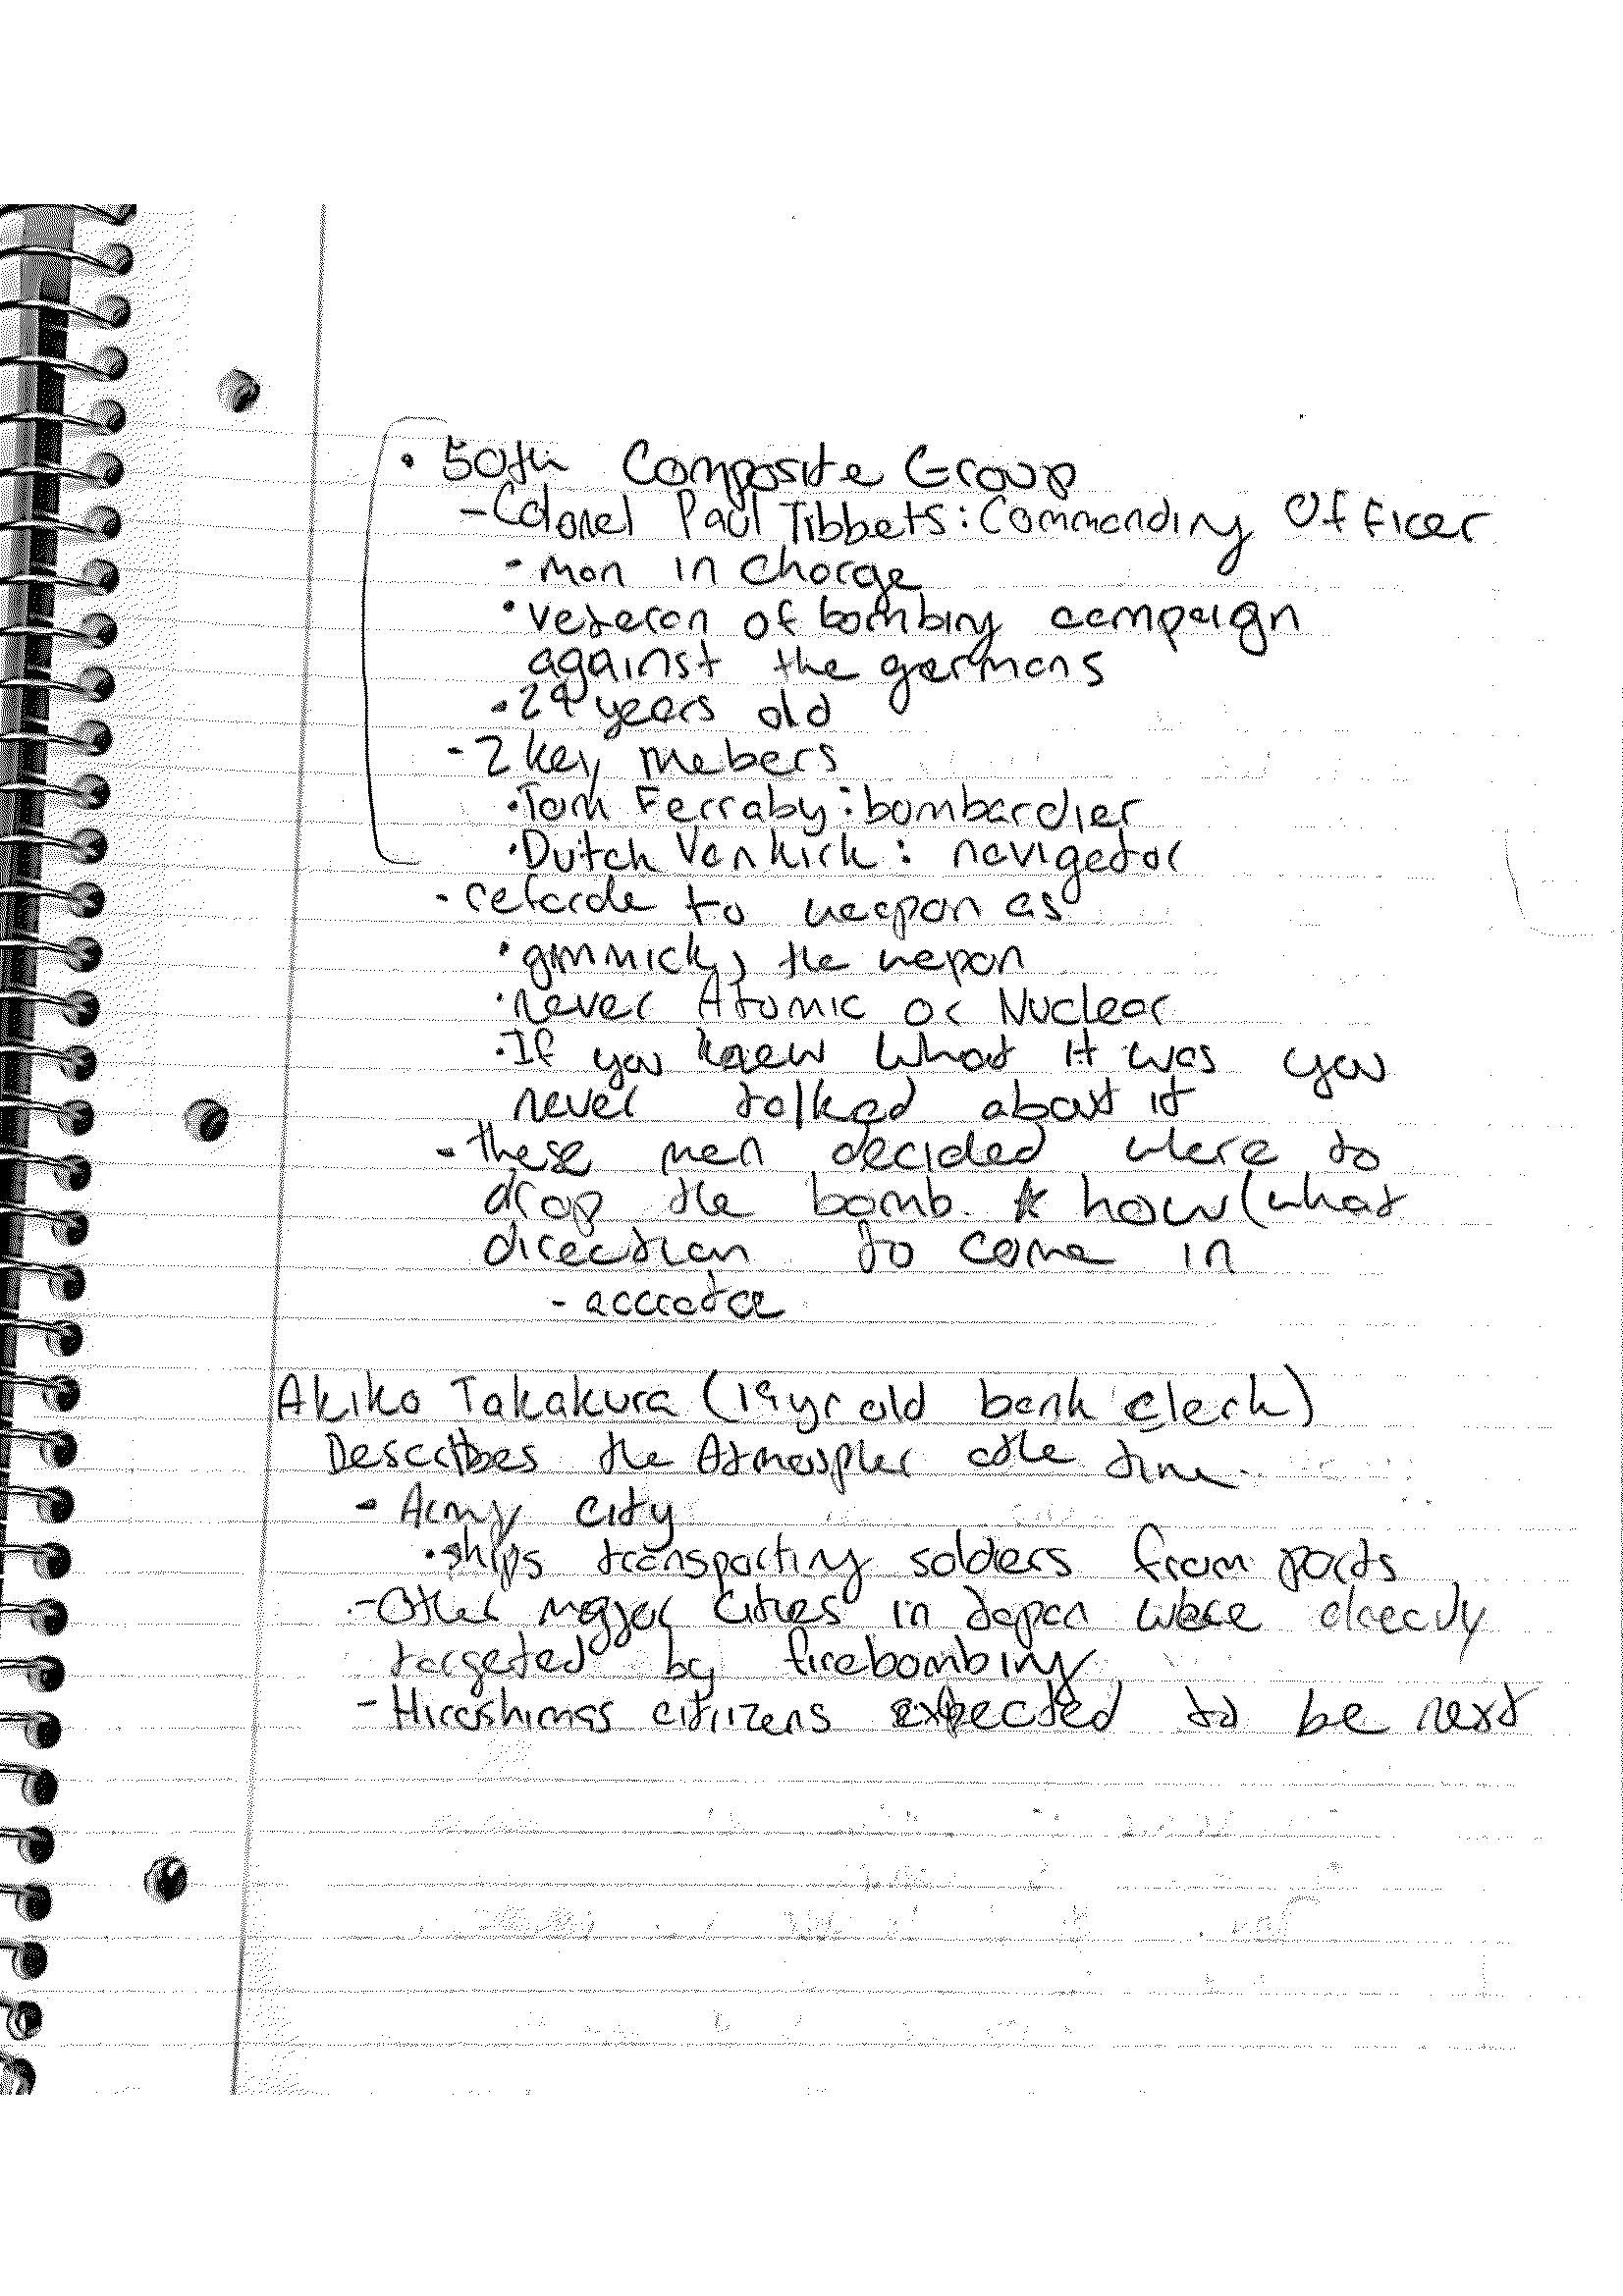 • 50th Composite Group
- Colonel Paul Tibbets: Commanding Officer
- man in charge
• veteran of bombing campaign
against the germans
• 29 years old
- 2 key mebers
• Tom Ferraby: bombardier
• Dutch Vankirk: navigator
- refarde to weapon as
• gimmick, the wepon
• never Atomic or Nuclear
• If you knew what it was you
never talked about it
- these men decided where to
drop the bomb. & how (what
direction to come in
Akiko Takakura (19 yr old bank clerk)
Describes the Atmospher at the time.
- Army city
• ships transporting solders from ports
- Other major cities in Japan were already
targeted by firebombing
- Hiroshimas citizens expected to be next